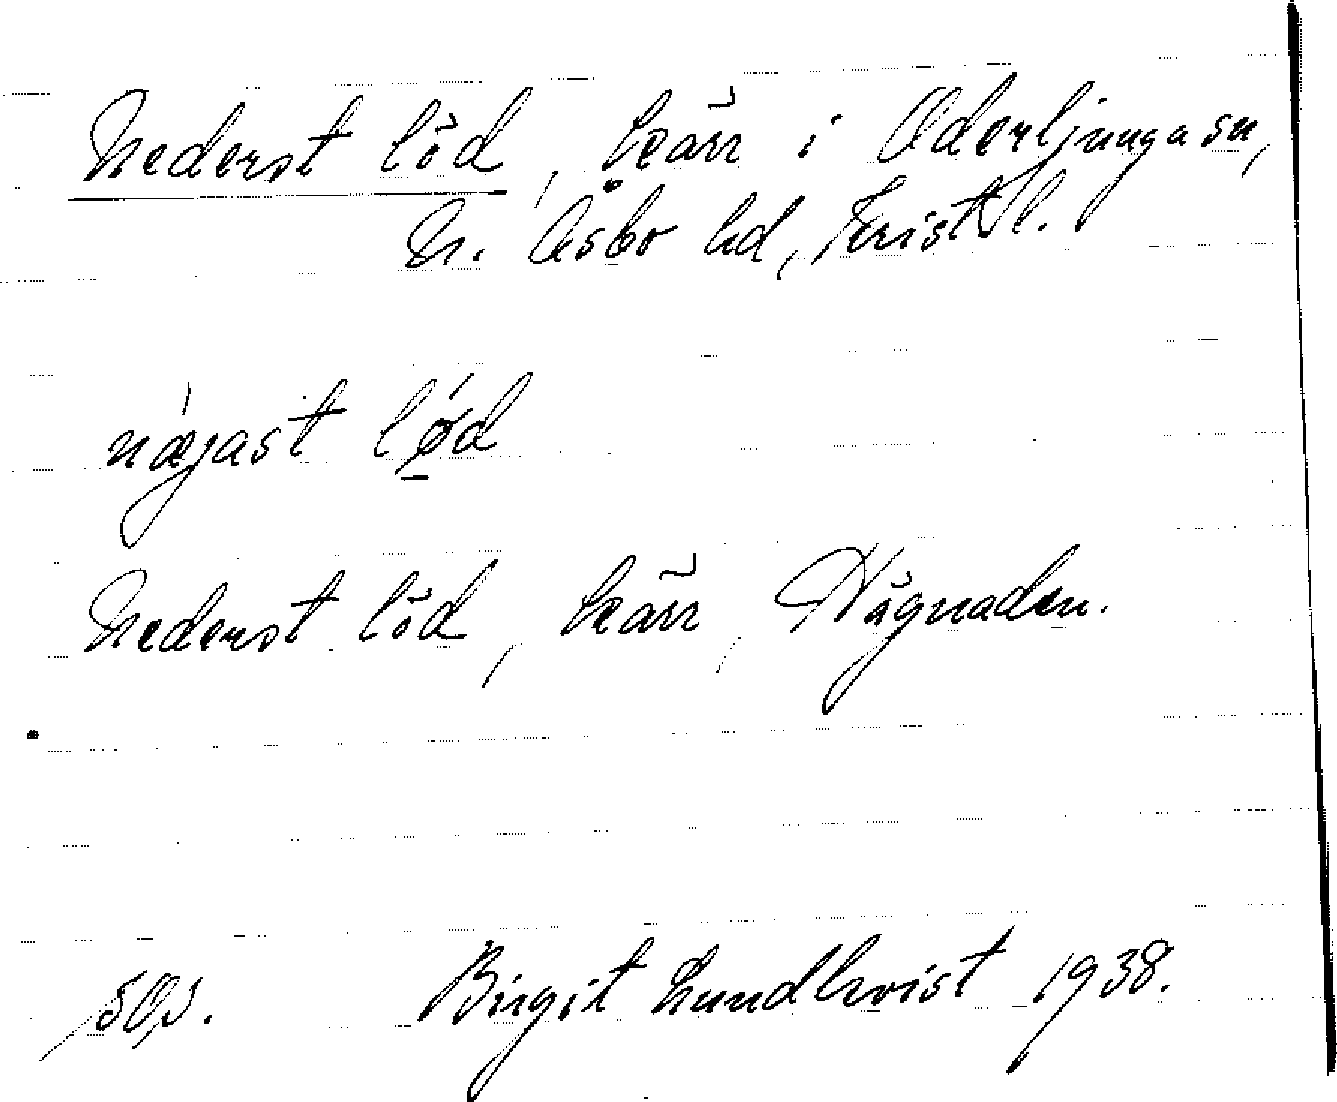 Nederst löd, kärr i Oderljunga sn,
N. Åsbo hd, Krist. l.
nǽjast lǿd
Nederst löd, kärr, Hågnaden.
Birgit Lundkvist 1938.